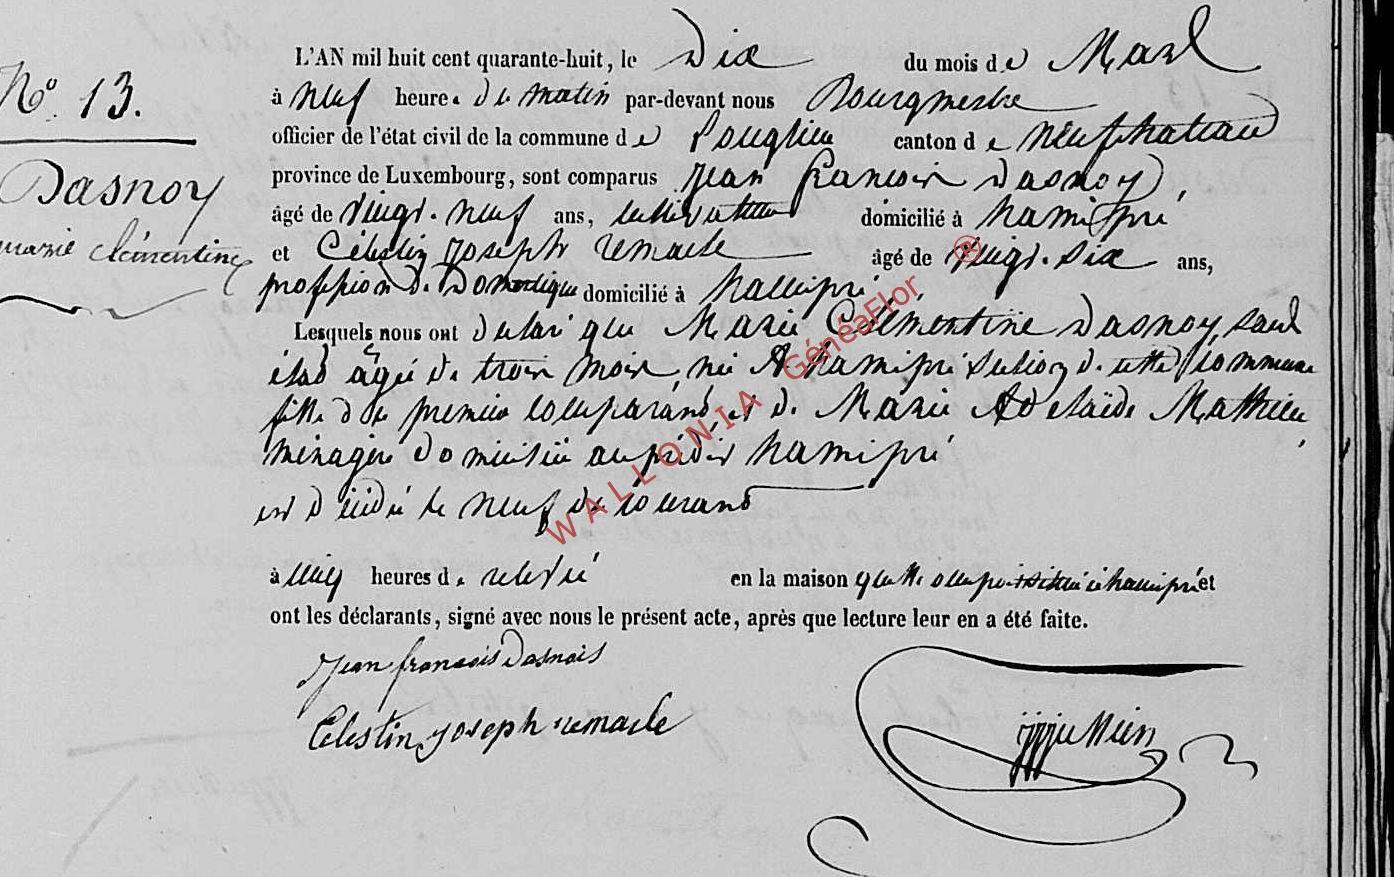 N° 13.
Dasnoy
marie clémentine
L'AN mil huit cent quarante-huit, le Dix du mois de Mars
à neuf heures du matin par-devant nous Bourgmestre
officier de l'état civil de la commune de Longlier canton de neufchateau
province de Luxembourg, sont comparus Jean francois Dasnoy,
âgé de vingt-neuf ans, cultivateur domicilié à hamipré
et Célestin Joseph remacle âgé de vingt-six ans,
profession de Domestique domicilié à hamipré
Lesquels nous ont declaré que Marie Clémentine Dasnoy,
agée de trois mois, née A hamipré section de cette commune
fille du premier comparand et de Marie Adelaïde Mathieu
ménagère domiciliée au prédit hamipré
est décédée le neuf du courand
à cinq heures de relevée en la maison qu'elle occupoit située à hamipré et
ont les déclarants, signé avec nous le présent acte, après que lecture leur en a été faite.
Jean francois Dasnois
Celestin Joseph remacle
WALLONIA GénéaFlor ®